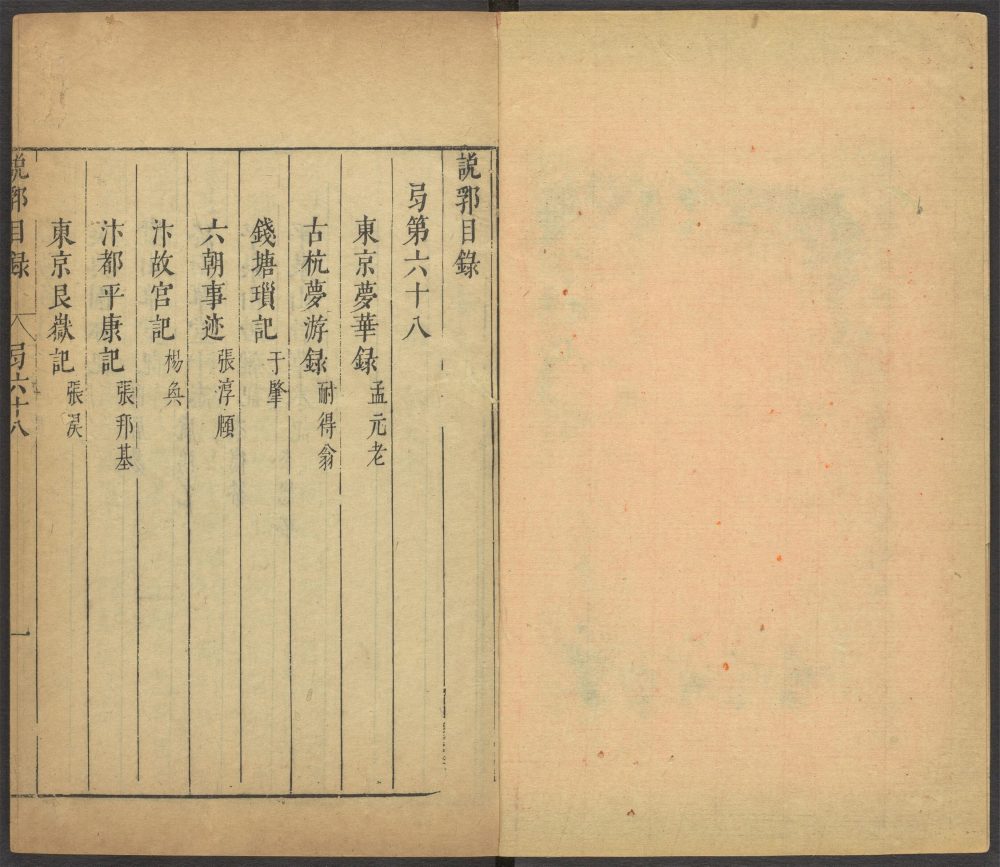 説郛目錄
弓第六十八
東京夢華錄 孟元老
古杭夢游録 耐得翁
錢塘瑣記 于肇
六朝事迹 張淳頤
汴故宮記 楊奐
汴都平康記 張邦基
東京艮嶽記 張淏
説郛目錄 弓六十八 一